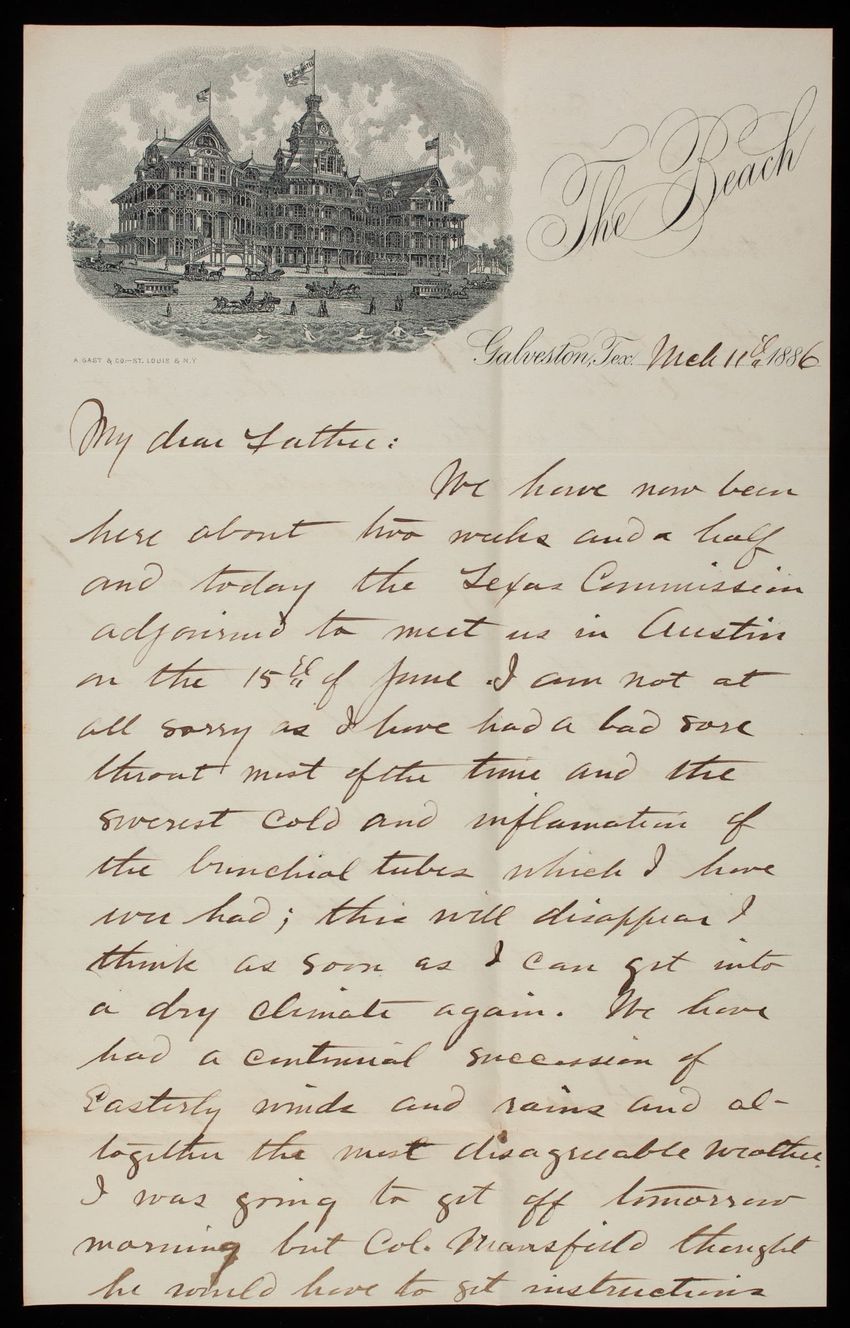 The Beach
A. GAST & CO.—ST. LOUIS & N.Y.
Galveston, Tex. Mch 11th 1886
My dear Father:
We have now been
here about two weeks and a half
and today the Texas Commission
adjourned to meet us in Austin
on the 15th of June. I am not at
all sorry as I have had a bad sore
throat most of the time and the
severest cold and inflamation of
the bronchial tubes which I have
ever had; this will disappear I
think as soon as I can get into
a dry climate again. We have
had a continual succession of
Easterly winds and rains and al-
together the most disagreeable weather.
I was going to get off tomorrow
morning but Col. Mansfield thought
he would have to get instructions